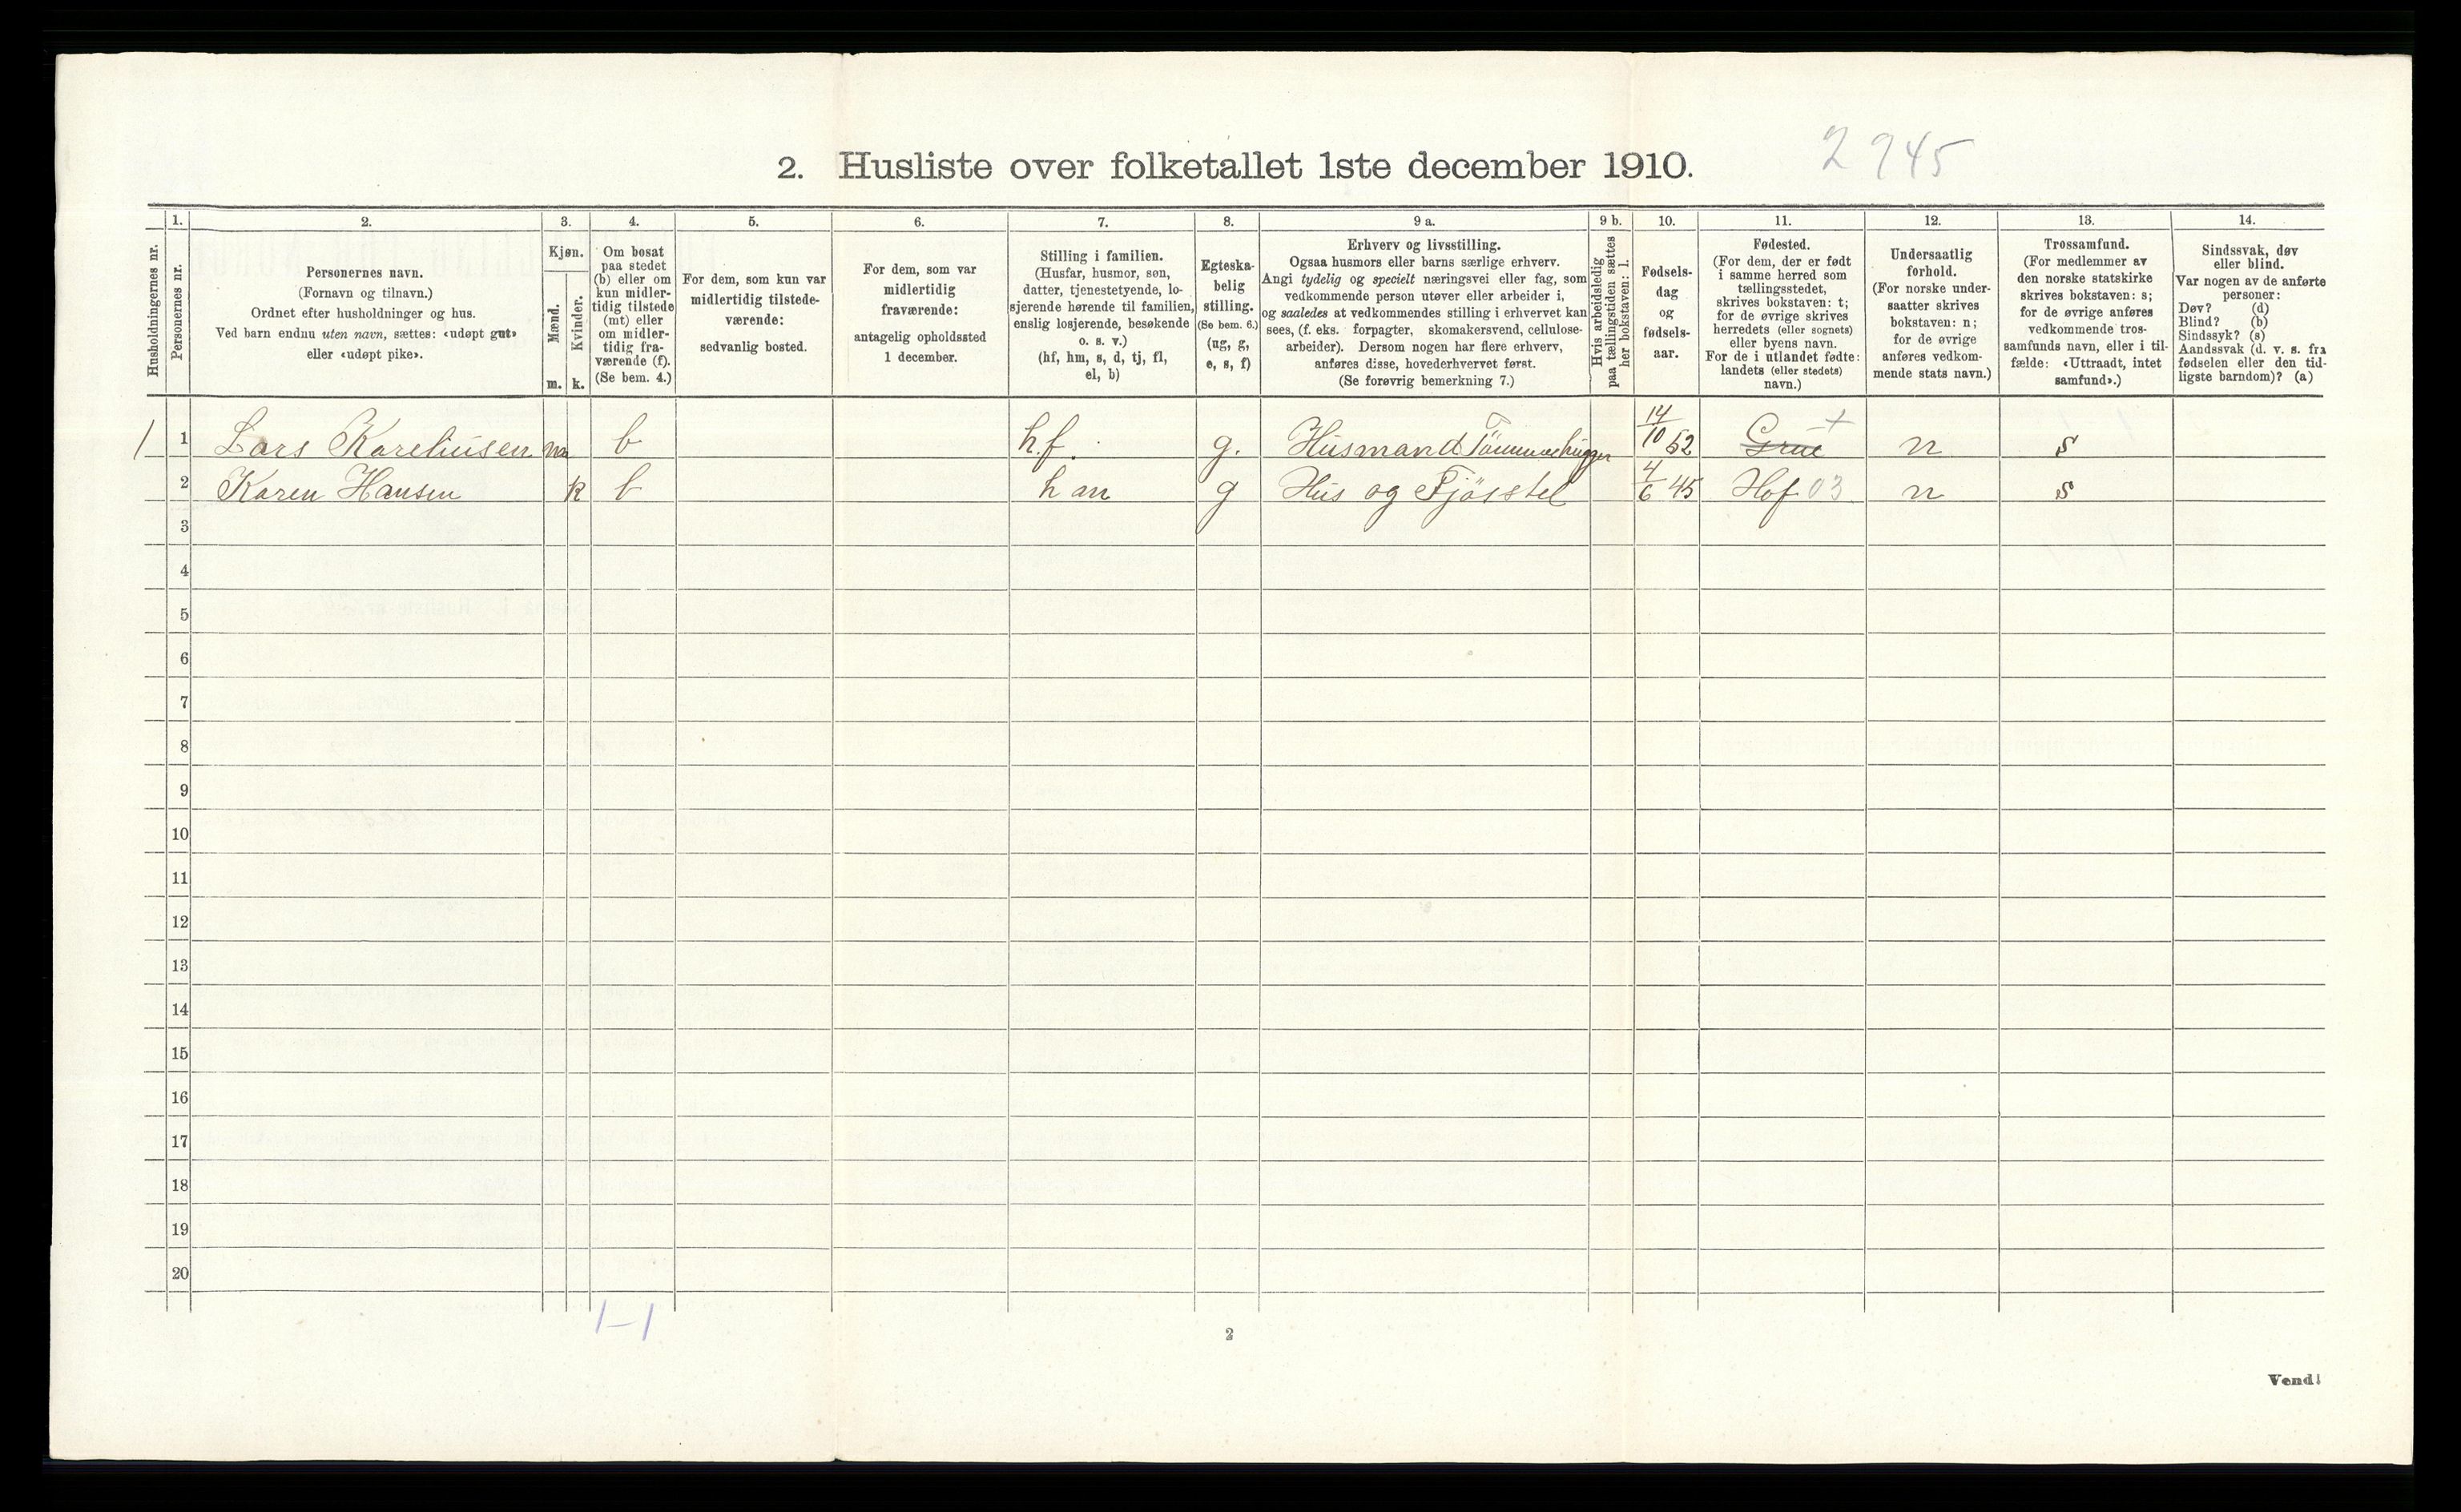 2. Husliste over folketallet 1ste december 1910.
2945
Husholdningernes nr.
1.
Personernes nr.
2.
Personernes navn.
(Fornavn og tilnavn.)
Ordnet efter husholdninger og hus.
Ved barn endnu uten navn, sættes: «udøpt gut»
eller «udøpt pike».
3.
Kjøn.
Mænd.
m.
Kvinder.
k.
4.
Om bosat
paa stedet
(b) eller om
kun midler-
tidig tilstede
(mt) eller
om midler-
tidig fra-
værende (f).
(Se bem. 4.)
5.
For dem, som kun var
midlertidig tilstede-
værende:
sedvanlig bosted.
6.
For dem, som var
midlertidig
fraværende:
antagelig opholdssted
1 december.
7.
Stilling i familien.
(Husfar, husmor, søn,
datter, tjenestetyende, lo-
sjerende hørende til familien,
enslig losjerende, besøkende
o. s. v.)
(hf, hm, s, d, tj, fl,
el, b)
8.
Egteska-
belig
stilling.
(Se bem. 6.)
(ug, g,
e, s, f)
9 a.
Erhverv og livsstilling.
Ogsaa husmors eller barns særlige erhverv.
Angi tydelig og specielt næringsvei eller fag, som
vedkommende person utøver eller arbeider i,
og saaledes at vedkommendes stilling i erhvervet kan
sees, (f. eks. forpagter, skomakersvend, cellulose-
arbeider). Dersom nogen har flere erhverv,
anføres disse, hovederhvervet først.
(Se forøvrig bemerkning 7.)
9 b.
Hvis arbeidsledig
paa tællingstiden sættes
her bokstaven: l.
10.
Fødsels-
dag
og
fødsels-
aar.
11.
Fødested.
(For dem, der er født
i samme herred som
tællingsstedet,
skrives bokstaven: t;
for de øvrige skrives
herredets (eller sognets)
eller byens navn.
For de i utlandet fødte:
landets (eller stedets)
navn.)
12.
Undersaatlig
forhold.
(For norske under-
saatter skrives
bokstaven: n;
for de øvrige
anføres vedkom-
mende stats navn.)
13.
Trossamfund.
(For medlemmer av
den norske statskirke
skrives bokstaven: s;
for de øvrige anføres
vedkommende tros-
samfunds navn, eller i til-
fælde: «Uttraadt, intet
samfund».)
14.
Sindssvak, døv
eller blind.
Var nogen av de anførte
personer:
Døv? (d)
Blind? (b)
Sindssyk? (s)
Aandssvak (d. v. s. fra
fødselen eller den tid-
ligste barndom)? (a)
1 1 Lars Kareliusen m b h.f. g. Husmand Tømmerhugger 14/10 52 Grue t n s
2 Karen Hansen k b hm g Hus og Fjösstel 4/6 45 Hof 03 n s
3
4
5
6
7
8
9
10
11
12
13
14
15
16
17
18
19
20
1–1
2
Vend!